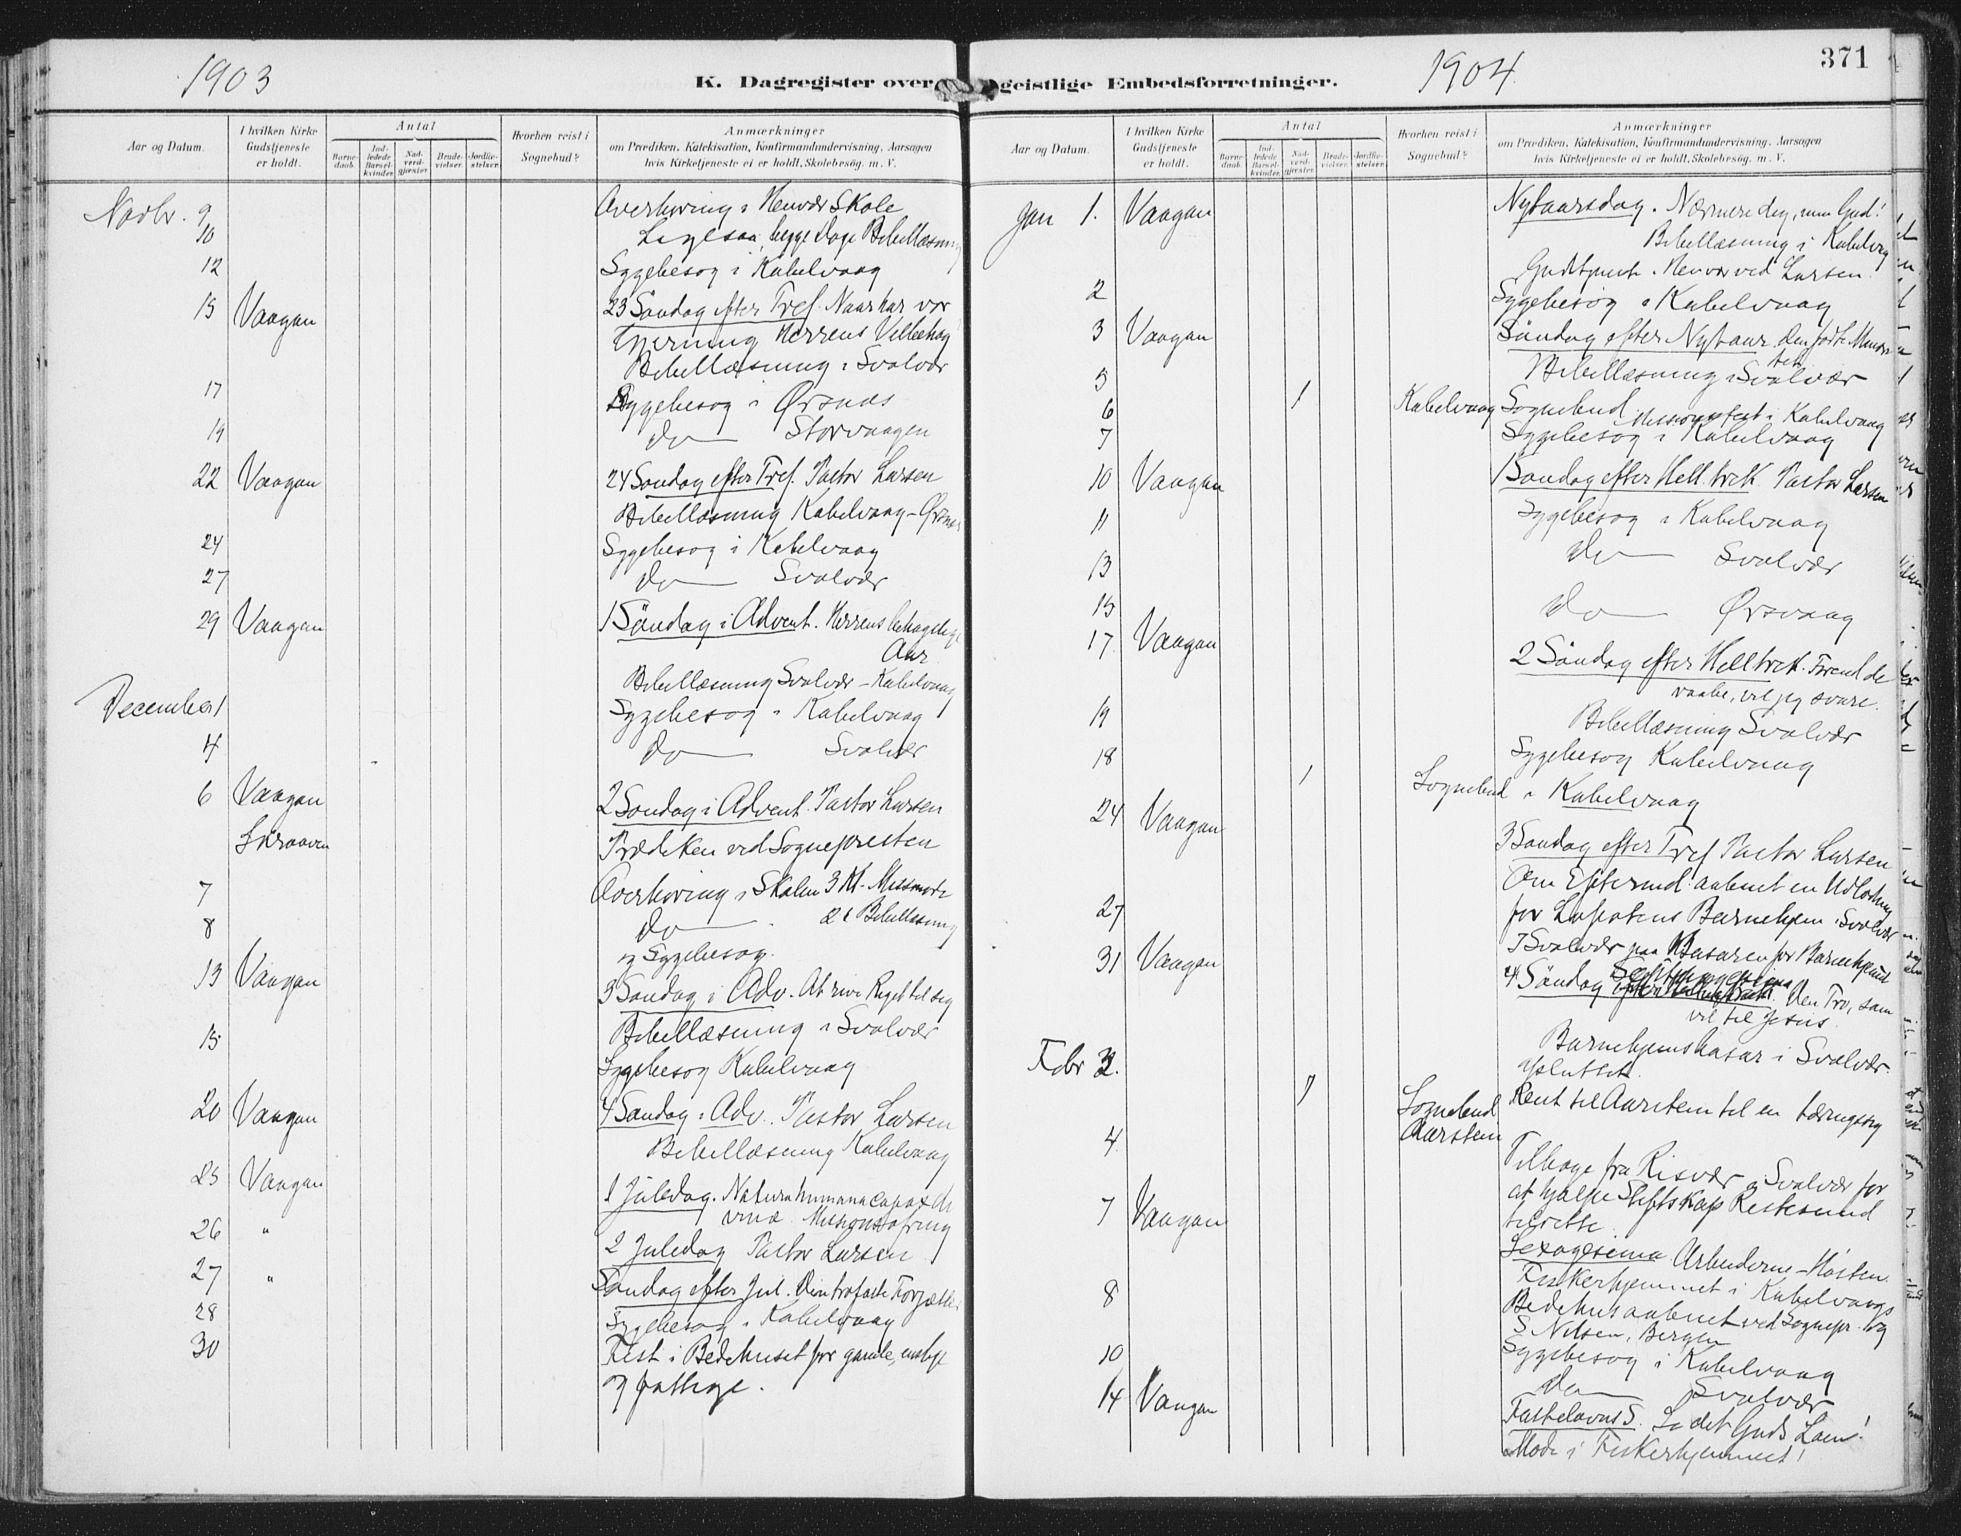 1903
K. Dagregister over
Aar og Datum.
I hvilken Kirke Gudstjeneste er holdt.
Antal
Barnedaab.
Indledede Barselkvinder.
Nadverdgjæster.
Brudevielser.
Jordfæstelser.
Hvorhen reist i Sognebud?
Anmærkninger
om Prædiken, Katekisation, Konfirmandundervisning, Aarsagen
hvis Kirketjeneste ei er holdt, Skolebesög. m. V.
Novbr. 9 Overhøring i Henvær Skole
10 Ligesaa, begge Dage Bibellæsning
12 Sygebesøg i Kabelvaag
15 Vaagan 23 Søndag efter Tref. Naar har vor
Gjerning Herrens Velbehag
Bibellæsning i Svolvær
17 Sygebesøg i Ørsnæs
19 do Storvaagen
22 Vaagan 24 Søndag efter Tref. Pastor Larsen
Bibellæsning Kabelvaag - Ørsnæs
24 Sygebesøg i Kabelvaag
27 do Svolvær
29 Vaagan 1 Søndag i Advent. Herrens behagelige
Aar
Bibellæsning Svolvær - Kabelvaag
December 1 Sygebesøg i Kabelvaag
4 do Svolvær
6 Vaagan 2 Søndag i Advent. Pastor Larsen
Skraaven Prædiken ved Sognepresten
7 Overhøring i Skolen 3 Kl. Missmøde
8 do 2 Bibellæsning
og Sygebesøg.
13 Vaagan 3 Søndag i Adv. At rive Riget til sig
Bibellæsning i Svolvær
15 Sygebesøg Kabelvaag
20 Vaagan 4 Søndag i Adv. Pastor Larsen
Bibellæsning Kabelvaag
25 Vaagan 1 Juledag. Natura humana capax di
vinæ. Missionsofring
26 " 2 Juledag Pastor Larsen
27 " Søndag efter Jul. Din trofaste Forjættelse
28 Sygebesøg i Kabelvaag
30 Fest i Bedehuset for gamle, enslige
og fattige.
371
1904
geistlige Embedsforretninger.
Aar og Datum.
I hvilken Kirke Gudstjeneste er holdt.
Antal
Barnedaab.
Indledede Barselkvinder.
Nadverdgjæster.
Brudevielser.
Jordfæstelser.
Hvorhen reist i Sognebud?
Anmærkninger
om Prædiken, Katekisation, Konfirmandundervisning, Aarsagen
hvis Kirketjeneste ei er holdt, Skolebesög. m. V.
Jan 1. Vaagan Nytaarsdag. Nærmere dig, min Gud!
Bibellæsning i Kabelvag
Gudstjeneste i Henvær ved Larsen.
2 Sygebesøg i Kabelvaag
3 Vaagan Søndag efter Nytaar den første
Bibellæsning i Svolvær
5 1 Kabelvaag Sognebud
6 Missionsfest i Kabelvaag
7 Sygebesøg i Kabelvaag
10 Vaagan 1 Søndag efter Hell. trek. Pastor Larsen
11 Sygebesøg i Kabelvaag
13 do Svolvær
15 do Ørsvaag
17 Vaagan 2 Søndag efter Helltrek. Førend de
raabe, vil jeg svare.
19 Bibellæsning Svolvær
18 Sygebesøg Kabelvaag
1 Sognebud i Kabelvaag
24 Vaagan 3 Søndag efter Tref Pastor Larsen
Om Eftermid. aabnet en Udlodning
27 for Lofotens Barnehjem i Svolvær
I Svolvær paa Basaren for Barnehjemmet
31 Vaagan 4 Søndag Septuagesima. Den Tro, som
vil til Jesus.
Barnehjemsbasar i Svolvær
Febr 2. afsluttet.
1 Sognebud Aarstein Reist til Aarstein til en tæringssyg
4 Tilbage fra Risvær i Svolvær for
at hjælpe Stiftskap Restesund
tilrette.
7 Vaagan Sexagesima Arbeiderne - Høsten.
8 Fiskerhjemmet i Kabelvaags
Bedehus aabnet ved Sognepr. og
S Nilsen, Bergen
10 Sygebesøg i Kabelvaag
do Svolvær
14 Vaagan Fastelavns S. Se det Guds Lam!
Møde i Fiskerhjemmet!